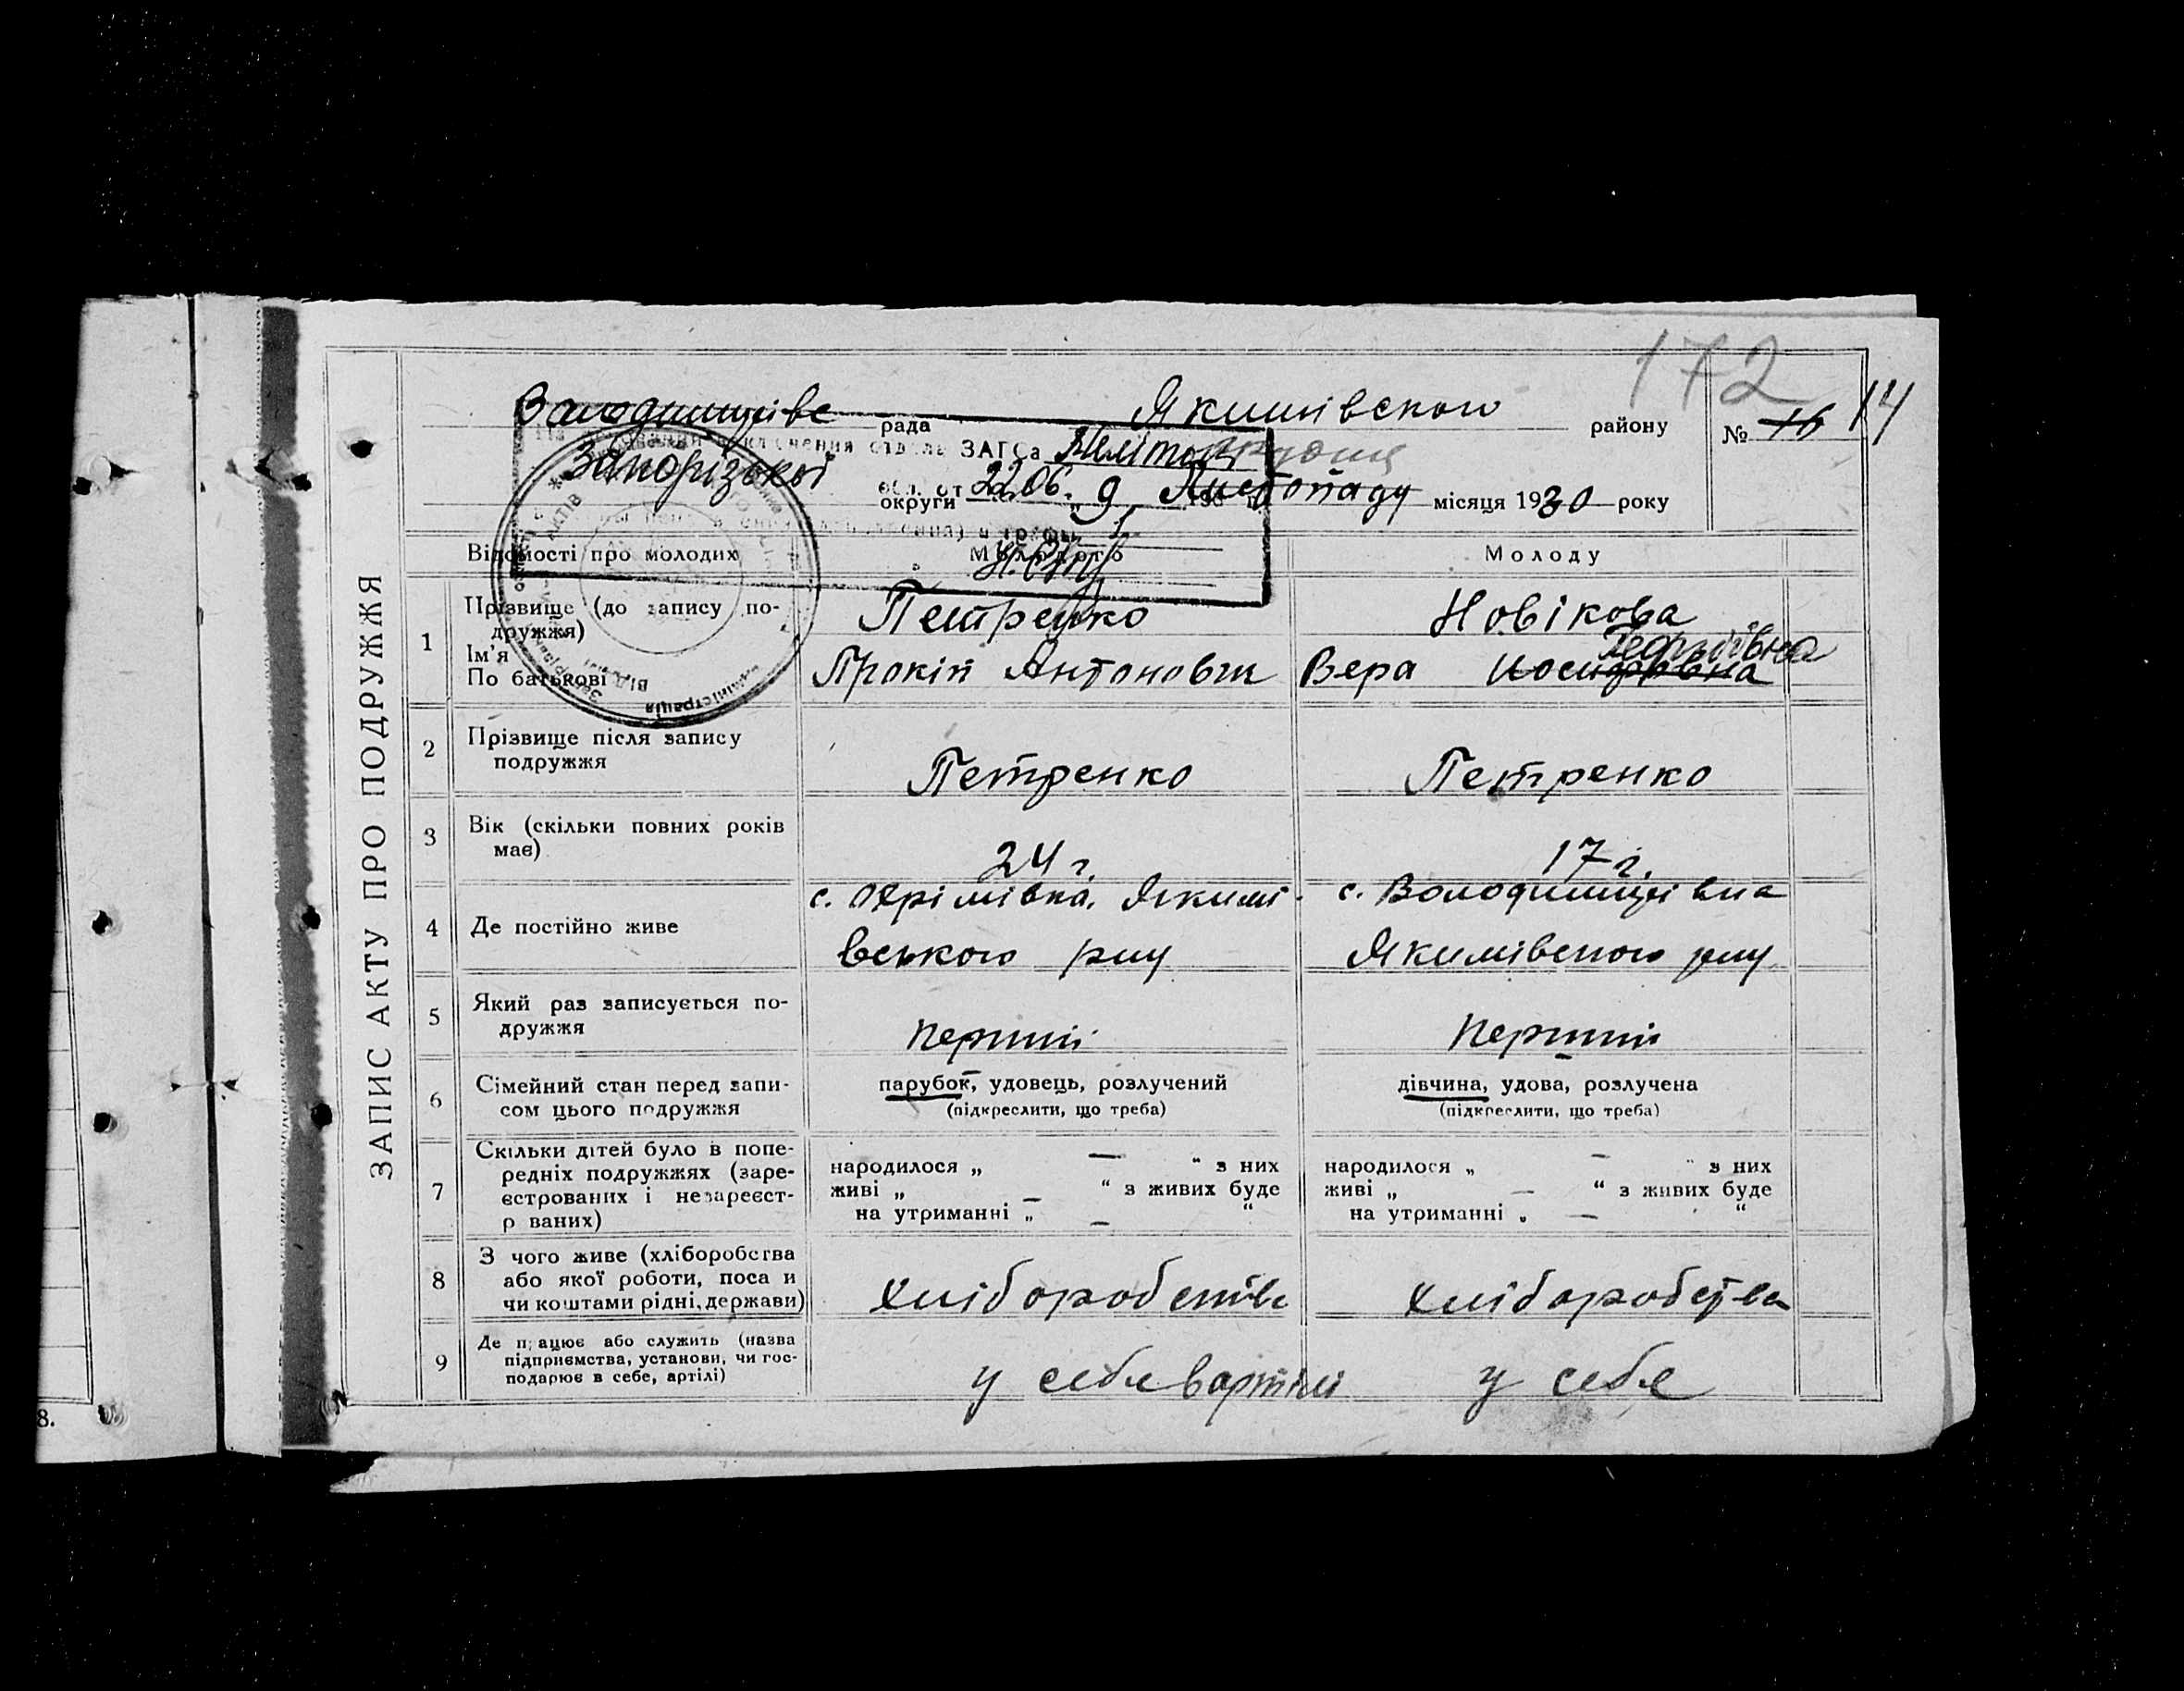 172
Якимівского
рада
району
№ 16 14
ЗАГСа
Запорізької
округи
22.06.
9 Листопаду місяця 1930 року
Відомості про молодих
Молодого
Молоду
ЗАПИС АКТУ ПРО ПОДРУЖЖЯ
1
Прізвище (до запису по-
дружжя)
Ім'я
По батькові
Петренко
Прокіп Антонович
Новікова
Вера Иосифовна
2
Прізвище після запису
подружжя
Петренко
Петренко
3
Вік (скільки повних років
має)
24 г.
17 г.
4
Де постійно живе
с. Охрімівка, Якимі-
вського рну
с. Володимирівка
Якимівского рну
5
Який раз записується по-
дружжя
перший
перший
6
Сімейний стан перед запи-
сом цього подружжя
парубок, удовець, розлучений
(підкреслити, що треба)
дівчина, удова, розлучена
(підкреслити, що треба)
7
Скільки дітей було в попе-
редніх подружжях (заре-
єстрованих і незареєст-
р ваних)
народилося „ — “ з них
живі „ — “ з живих буде
на утриманні „ — “
народилося „ — “ з них
живі „ — “ з живих буде
на утриманні „ — “
8
З чого живе (хліборобства
або якої роботи, поса и
чи коштами рідні, держави)
хліборобства
хліборобства
9
Де працює або служить (назва
підприємства, установи, чи гос-
подарює в себе, артілі)
у себе в артілі
у себе
8.